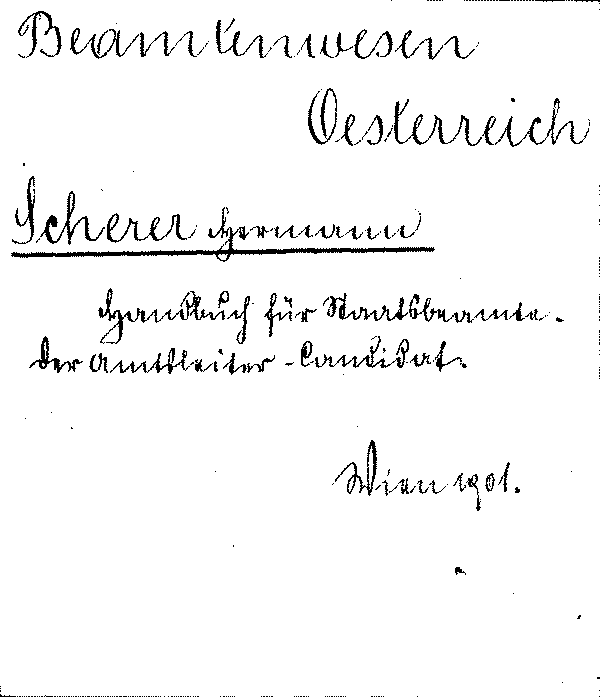 Beamtenwesen
Oesterreich
Scherer Hermann
Handbuch für Staatsbeamte.
Der Amtsleiter-Candidat.
Wien 1901.